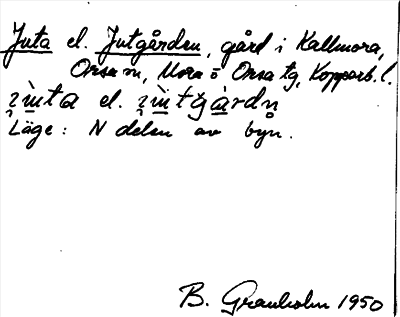 Juta el. Jutgården, gård i Kallmora,
Orsa sn, Mora o Orsa tg, Kopparb. l.
el.
Läge: N delen av byn.
B. Granholm 1950